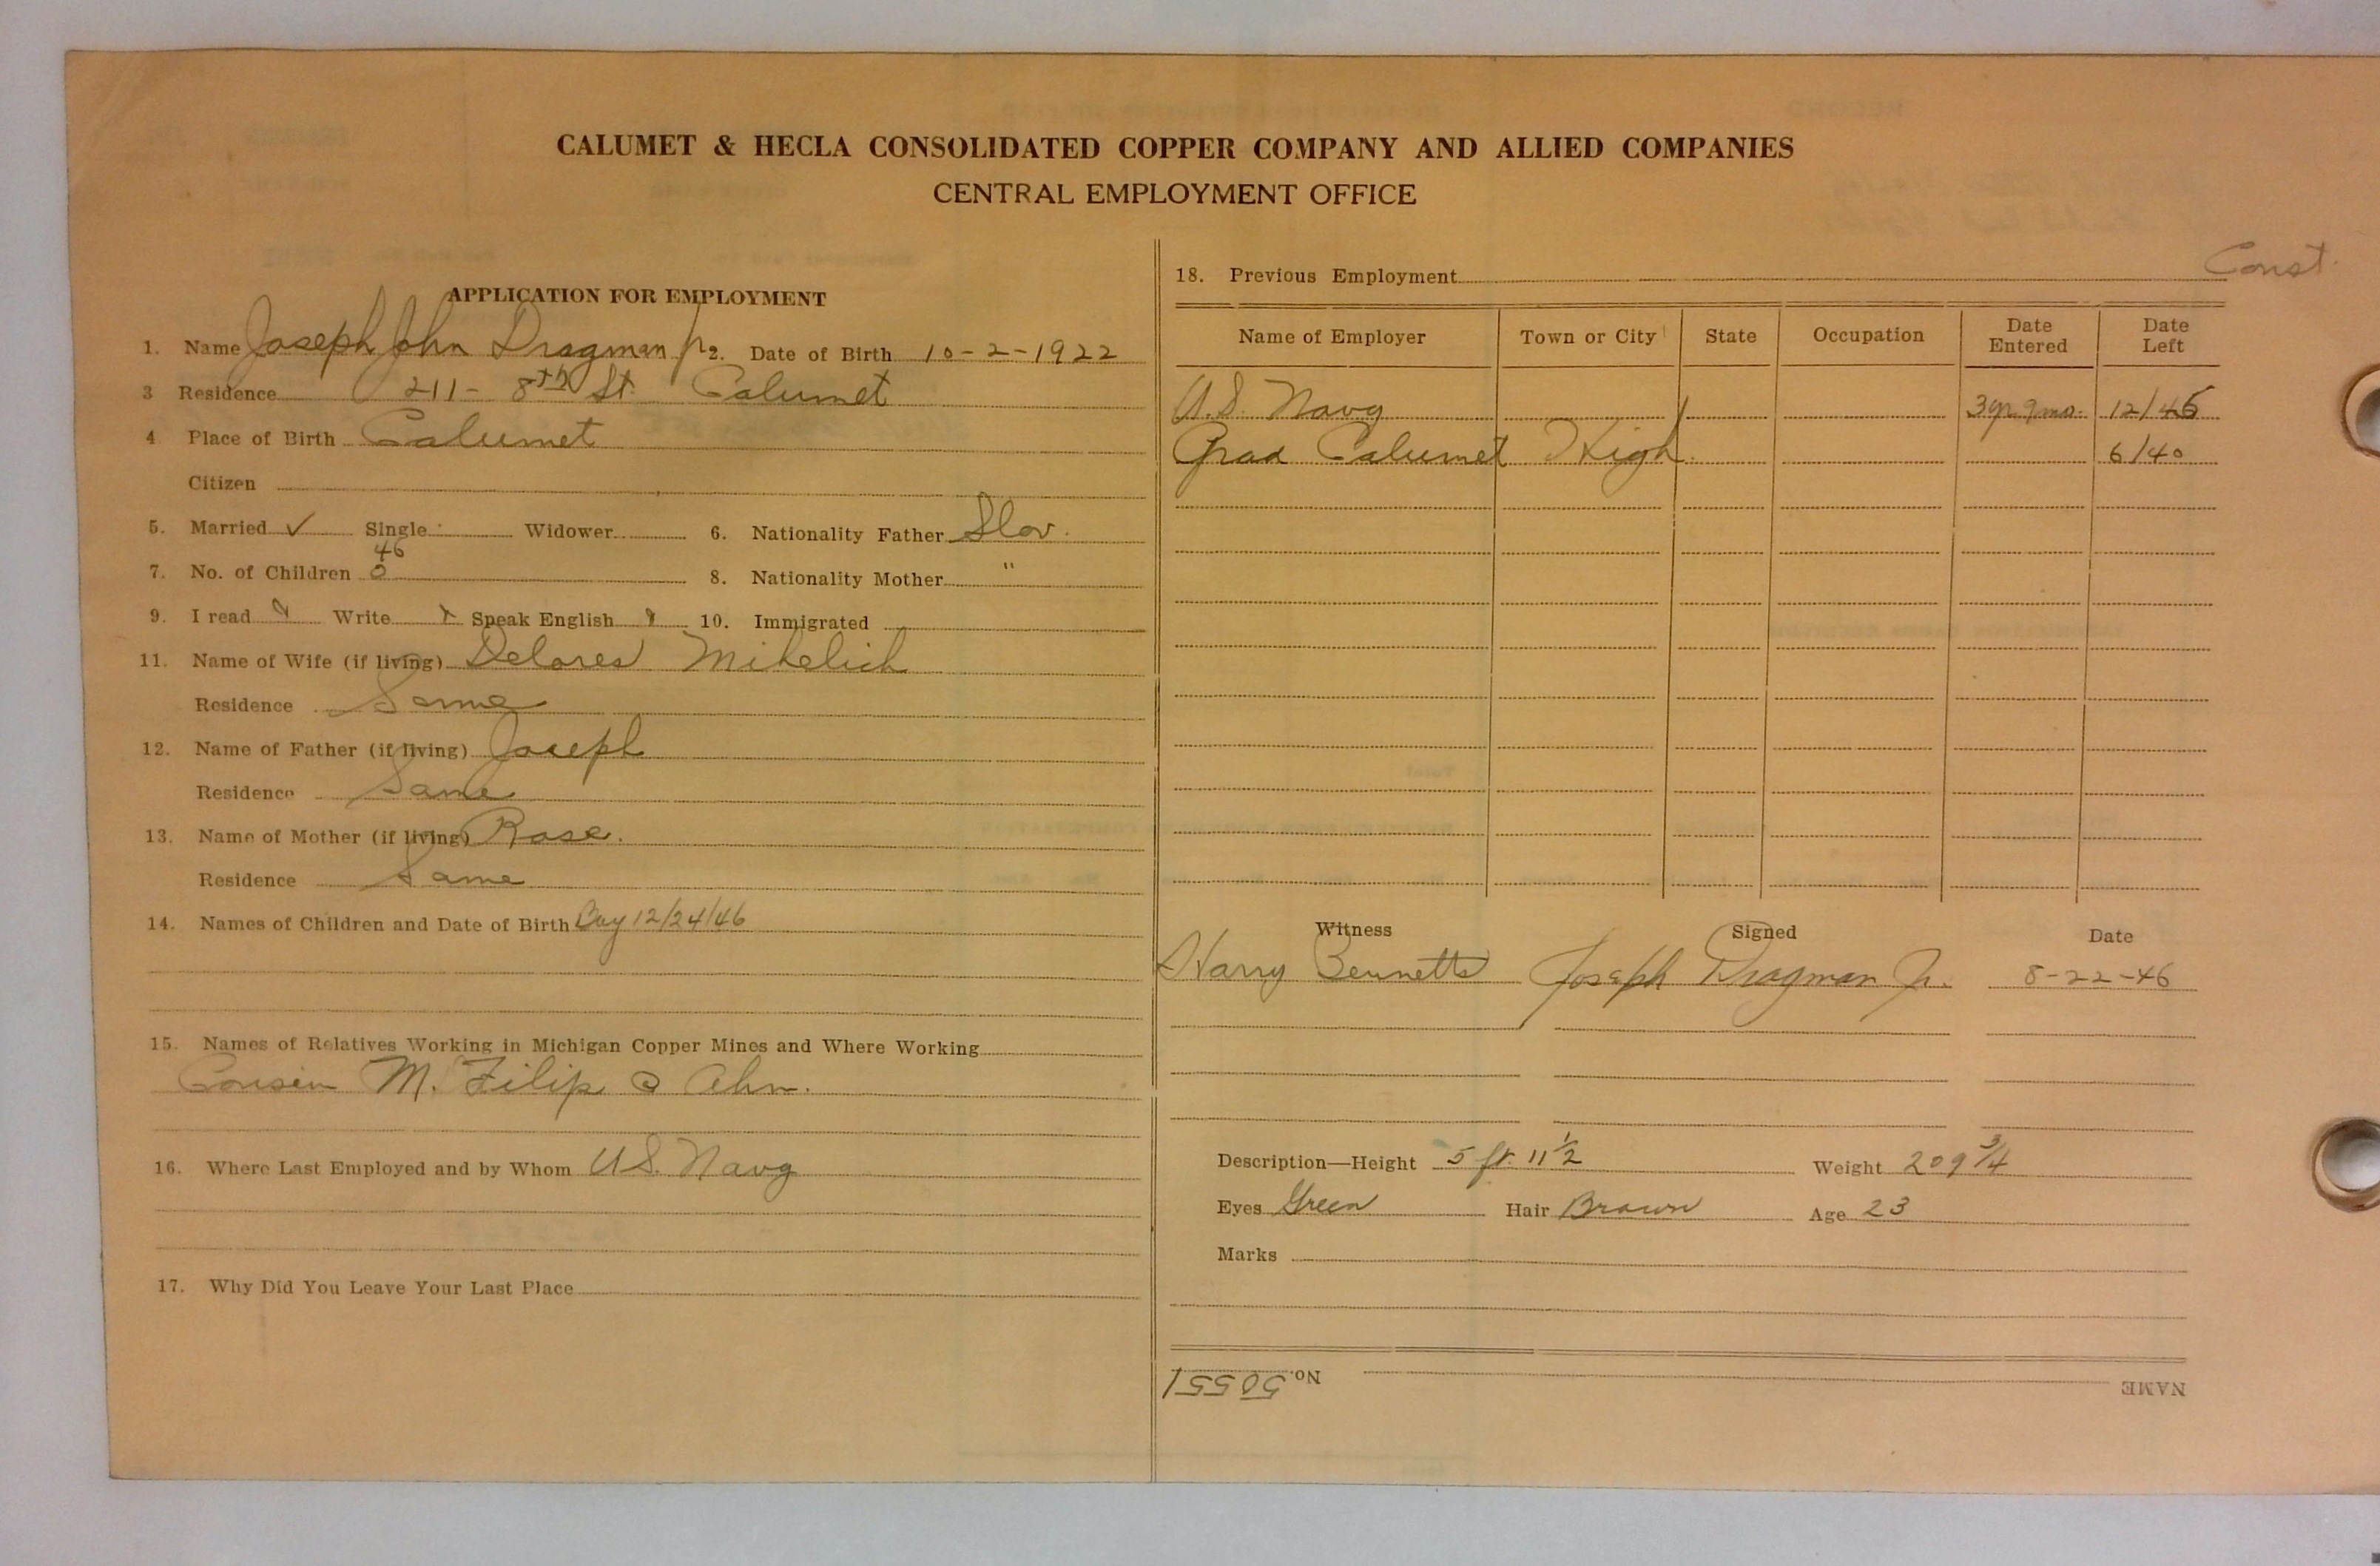 CALUMET & HECLA CONSOLIDATED COPPER COMPANY AND ALLIED COMPANIES
CENTRAL EMPLOYMENT OFFICE
APPLICATION FOR EMPLOYMENT
1. Name Joseph John Dragman Jr 2. Date of Birth 10-2-1922
3 Residence 211- 8th St. Calumet
4 Place of Birth Calumet
Citizen
5. Married ✓ Single Widower 6. Nationality Father Slov.
46
7. No. of Children 0 8. Nationality Mother "
9. I read Write Speak English 10. Immigrated
11. Name of Wife (if living) Delores Mihelich
Residence Same
12. Name of Father (if living) Joseph
Residence Same
13. Name of Mother (if living) Rose.
Residence Same
14. Names of Children and Date of Birth Boy 12/24/46
15. Names of Relatives Working in Michigan Copper Mines and Where Working
Cousin M. Filip @ Ahm.
16. Where Last Employed and by Whom U.S. Navy
17. Why Did You Leave Your Last Place
Const.
18. Previous Employment
Name of Employer Town or City State Occupation Date Entered Date Left
U.S. Navy 3yr. 9mo. 12/45
Grad Calumet High. 6/40
Witness Signed Date
Harry Bennetts Joseph Dragman Jr. 8-22-46
Description—Height 5 ft. 11 1/2 Weight 209 3/4
Eyes Green Hair Brown Age 23
Marks
No. 50551 NAME